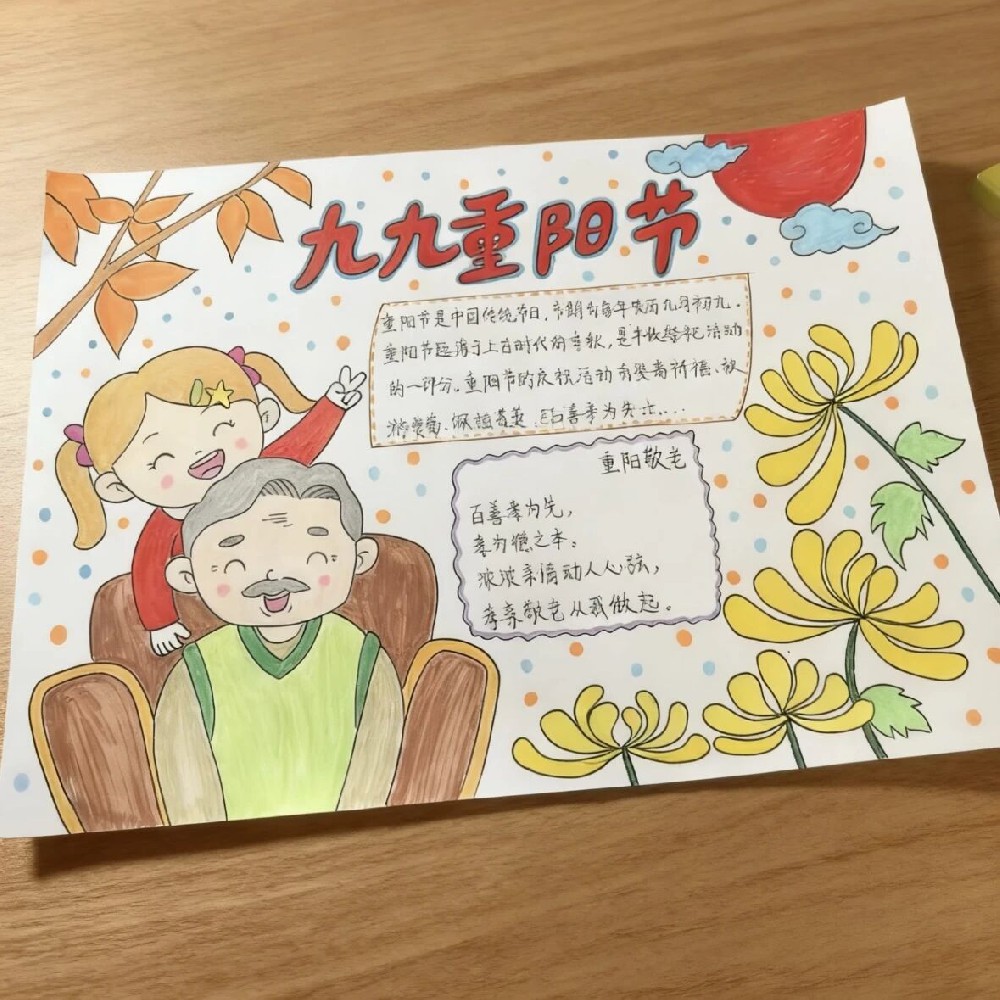 九九重阳节
重阳节是中国传统节日,日期为每年农历九月初九。
重阳节起源于上古时代的季秋,是丰收祭祀活动
的一部分。重阳节的庆祝活动有登高祈福、秋
游赏菊、佩插茱萸、百善孝为先让....
重阳敬老
百善孝为先,
孝为德之本。
浓浓亲情动人心弦,
孝亲敬老从我做起。